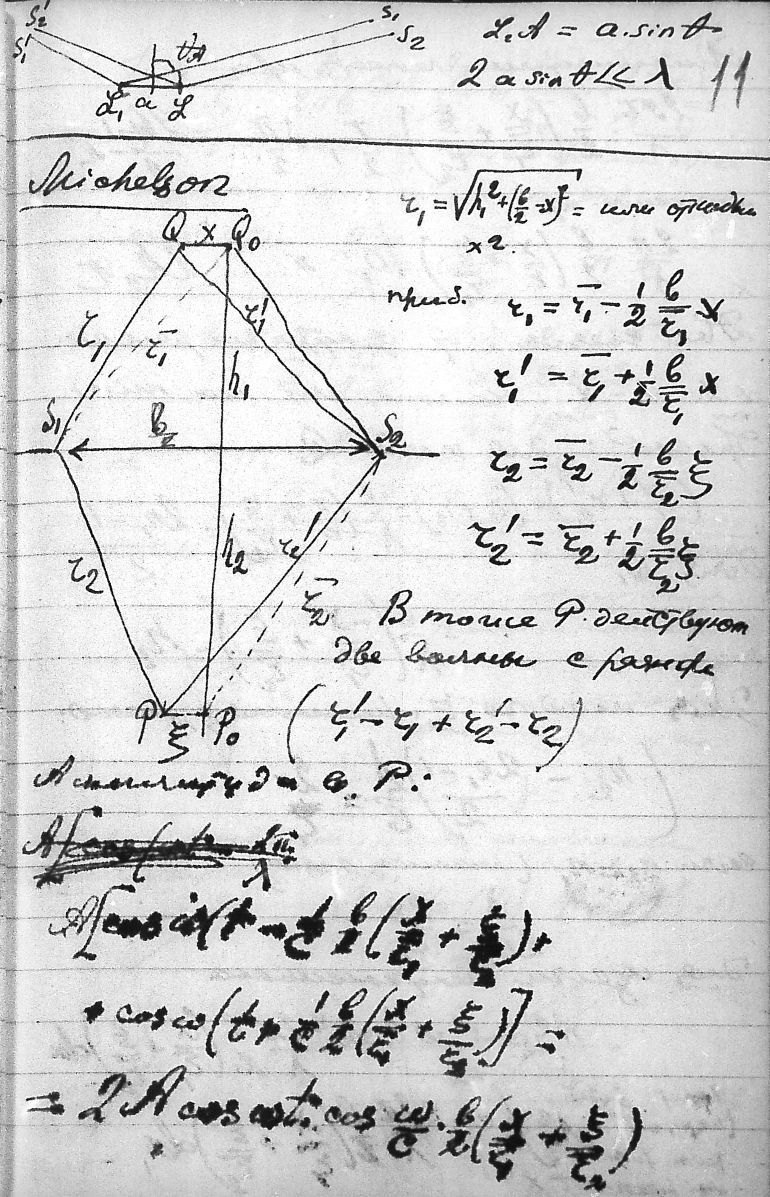 S₂'
S₁'
S₁
S₂
L₁ a L
L₁A = a.sin θ
2 a sin θ ≪ λ
11
Michelson
Q x Q₀
r₁ = √(h₁² + (b/2 - x)²) = или откидыв
x².
приб. r₁ = r̄₁ - 1/2 b/r̄₁ x
r₁' = r̄₁ + 1/2 b/r̄₁ x
r₂ = r̄₂ - 1/2 b/r̄₂ ξ
r₂' = r̄₂ + 1/2 b/r̄₂ ξ
r₁ r̄₁ r₁' h₁
S₁ b/2 S₂
r₂ h₂ r₂' r̄₂
P ξ P₀
В точке P. действуют
две волны с разн.
(r₁' - r₁ + r₂' - r₂)
Амплитуда в P:
A[cos ω(t - 1/c b/2 (x/r̄₁ + ξ/r̄₂)) +
+ cos ω(t + 1/c b/2 (x/r̄₁ + ξ/r̄₂))] =
= 2A cos ωt. cos ω/c · b/2 (x/r̄₁ + ξ/r̄₂)